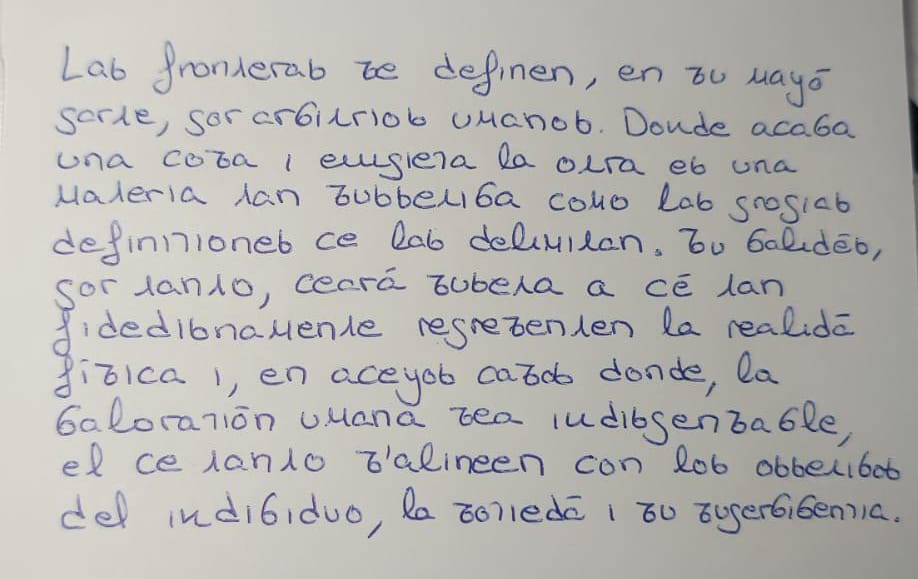 Las fronteras se definen, en su mayō
parte, por arbitrios umanos. Donde acaba
una cosa i empieza la otra es una
materia tan sussetiba como las propias
definiziones ce las delimitan. Su balidēs,
por tanto, ceará suseta a cē tan
fidedisnamente representen la realidā
física i, en aceyos casos donde, la
balorazión umana sea indispensable,
el ce tanto s'alineen con los ossetibos
del indibiduo, la soziedā i su superbibenzia.